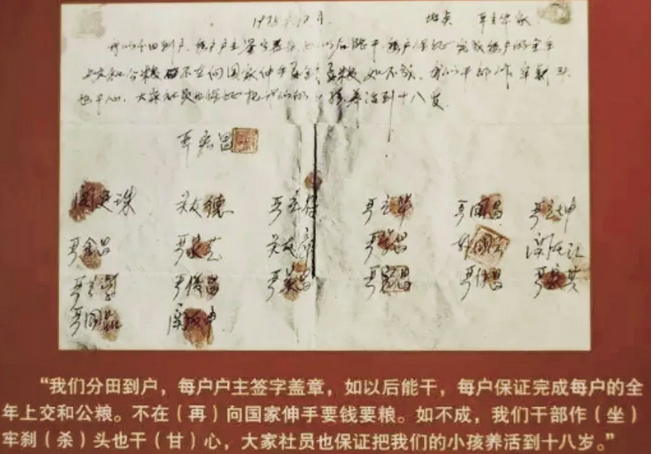 1978.12月 地点 严立华家
我们分田到户，每户户主签字盖章，如以后能干，每户保证完成每户的全年
上交和公粮。不在向国家伸手要钱要粮。如不成，我们干部作牢刹头
也干心，大家社员也保证把我们的小孩养活到十八岁。
严宏昌
关廷珠 关友德 严立符 严立华 严国昌 严立坤
严金昌 严家芝 关友章 严学昌 韩国云 关友江
严立学 严俊昌 严美昌 严宏昌 严付昌 严家其
严国品 关友申
“我们分田到户，每户户主签字盖章，如以后能干，每户保证完成每户的全
年上交和公粮。不在（再）向国家伸手要钱要粮。如不成，我们干部作（坐）
牢刹（杀）头也干（甘）心，大家社员也保证把我们的小孩养活到十八岁。”